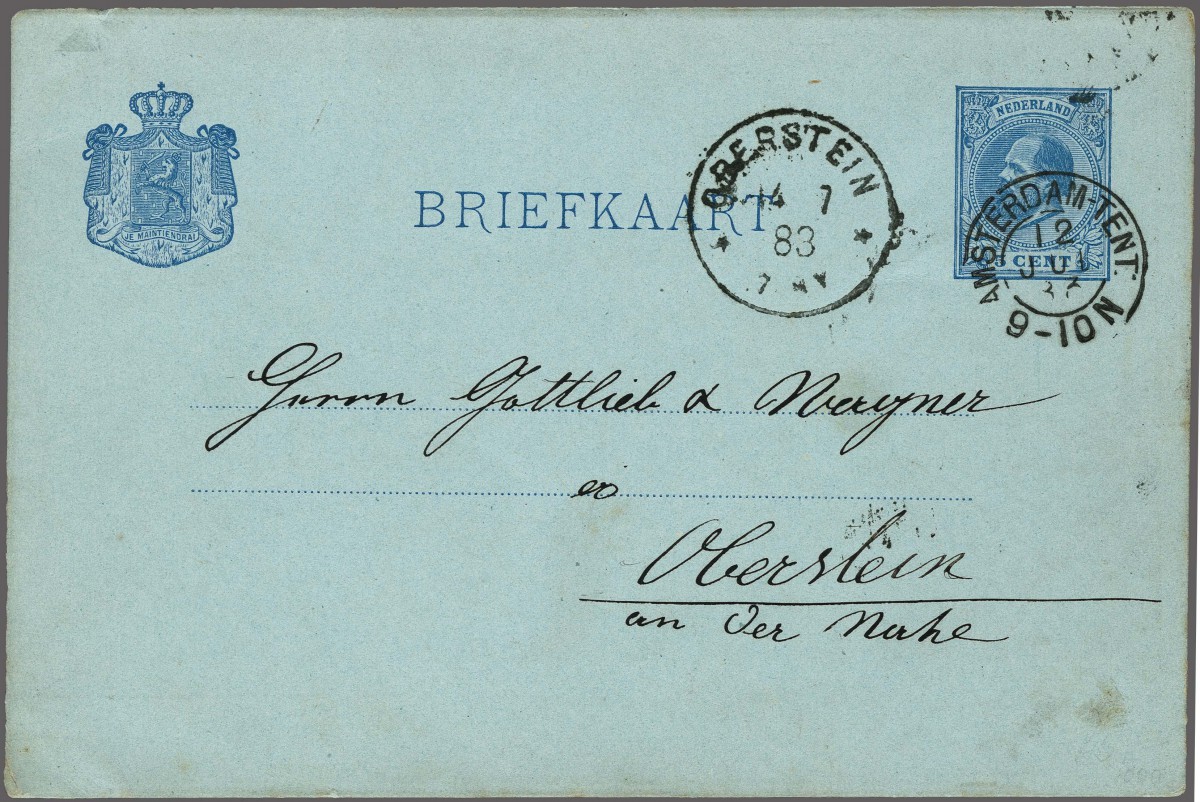 JE MAINTIENDRAI
BRIEFKAART
OBERSTEIN
14 7
83
7
NEDERLAND
5 CENT
AMSTERDAM-TENT.
12
JUL
83
9-10N
Herrn Gottlieb & Wargner
Oberstein
an der Nahe